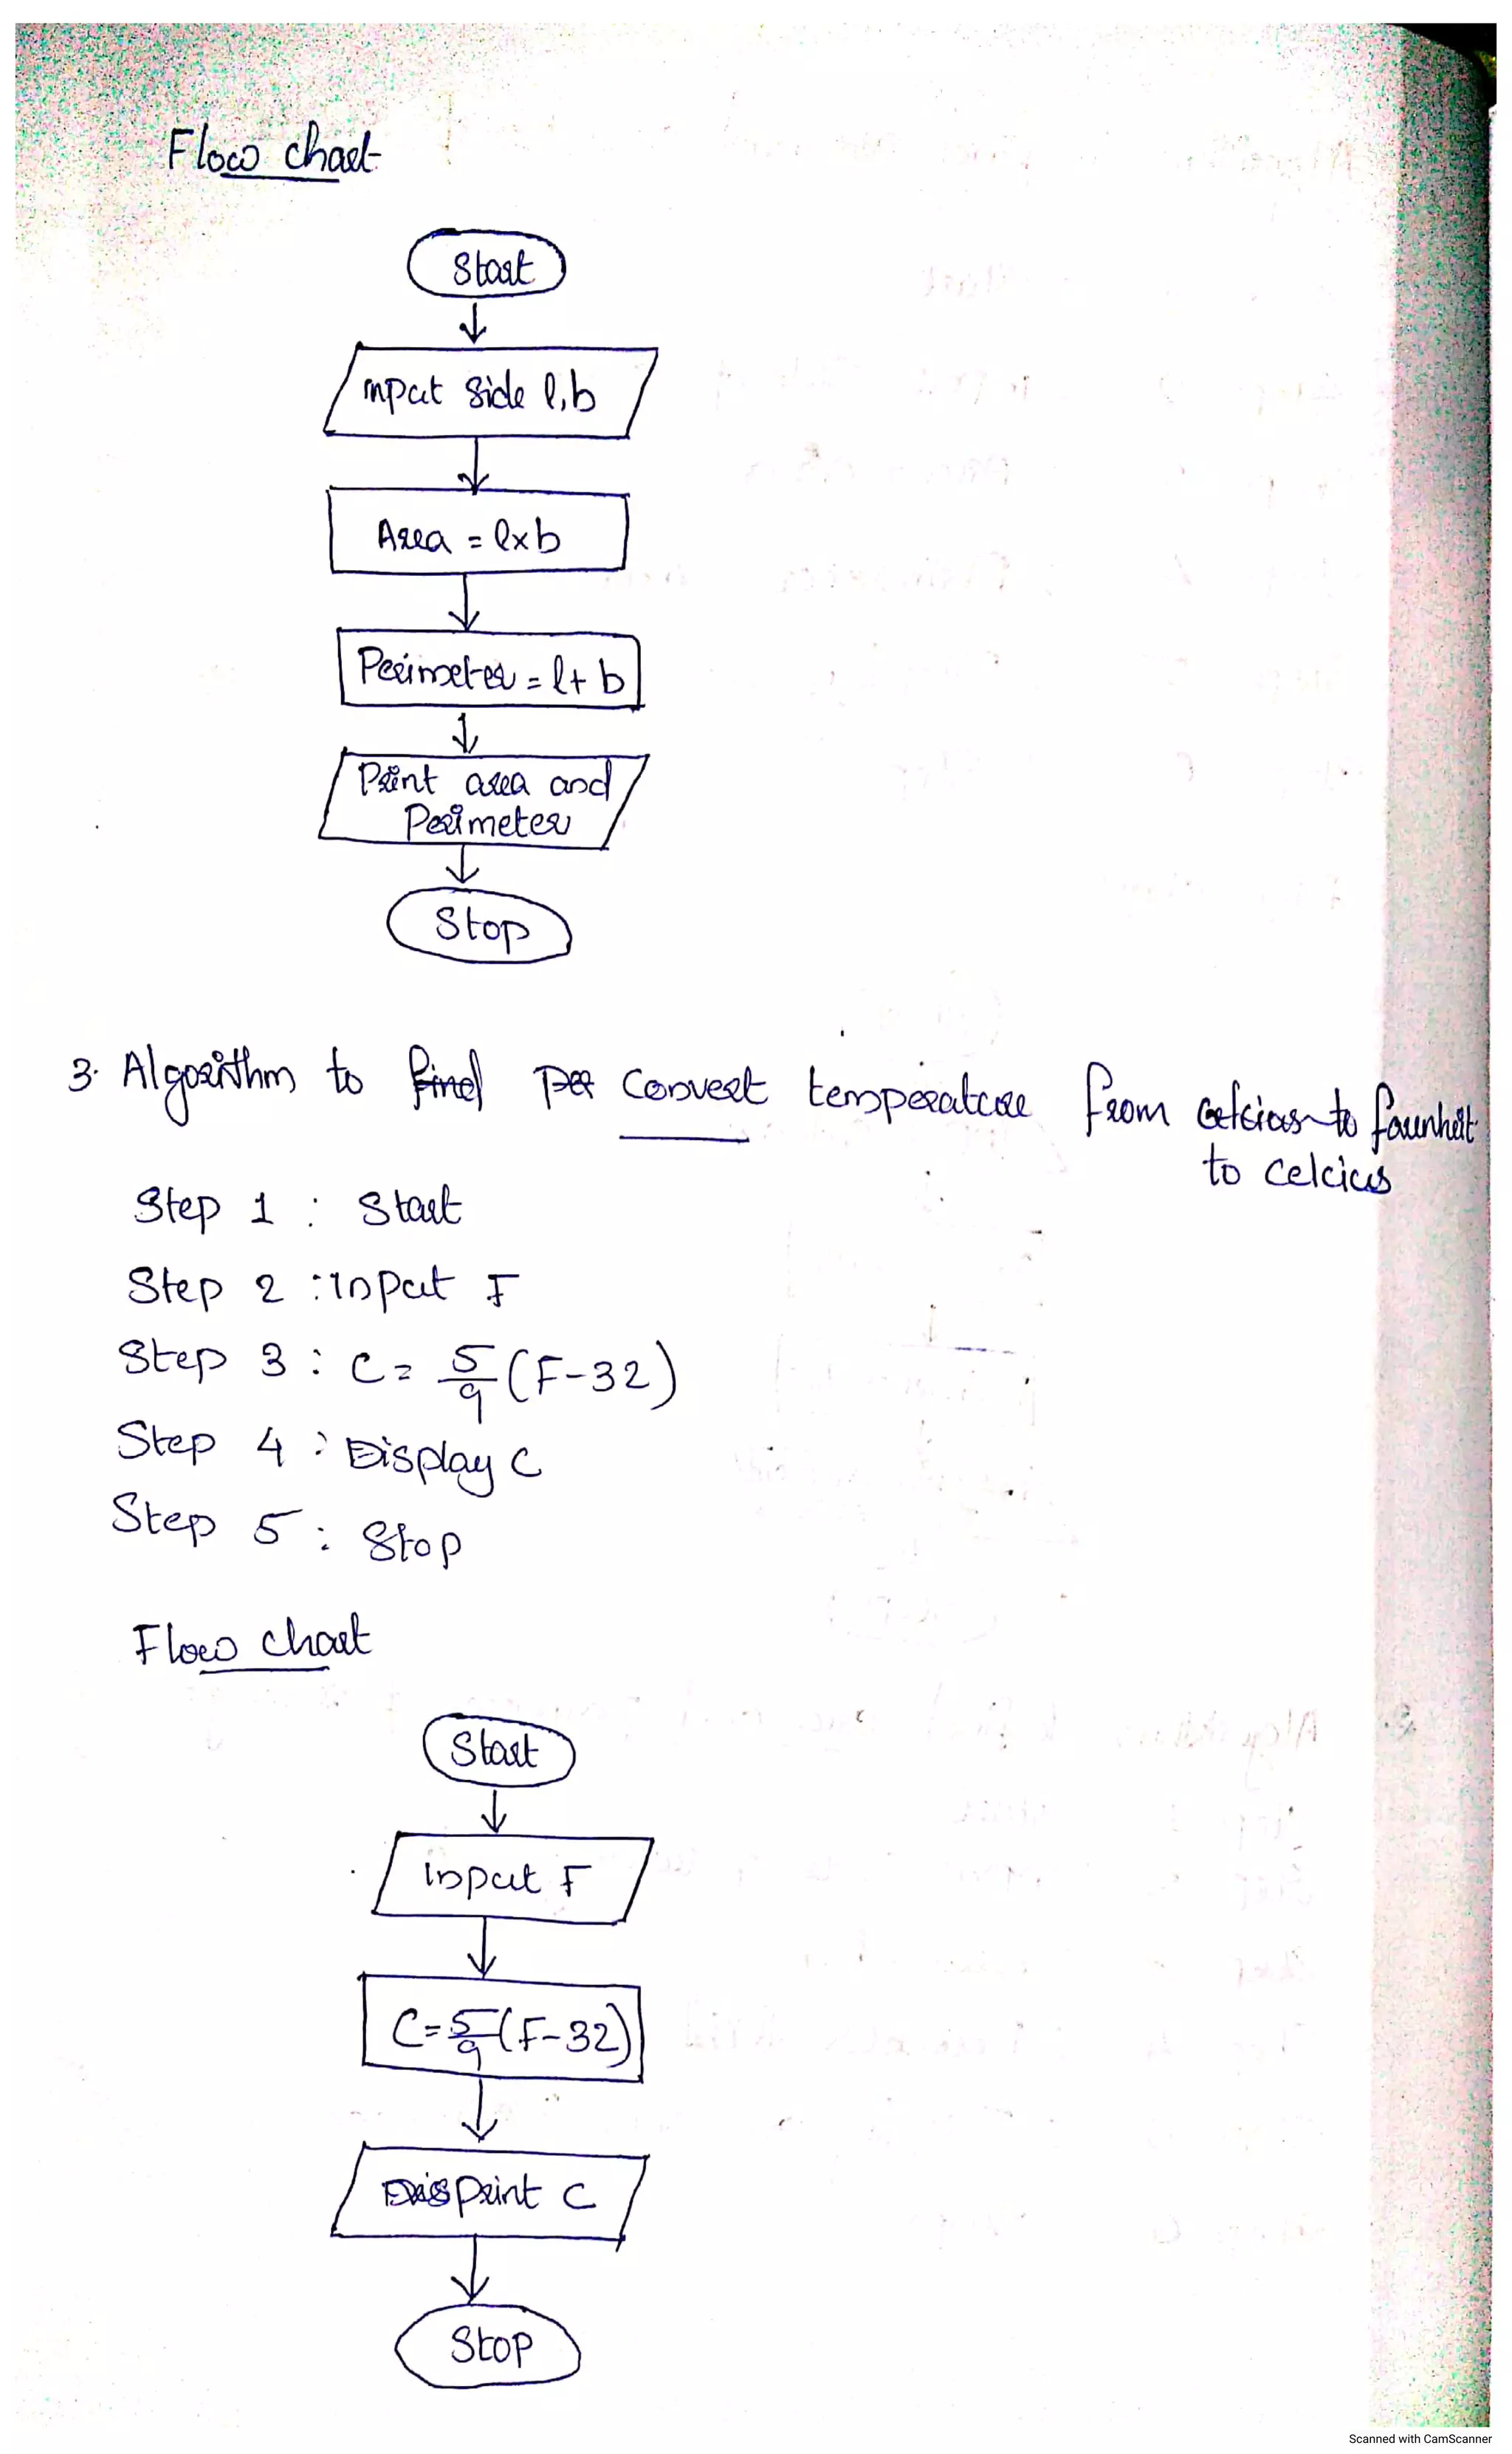 Flow chart
Start
Input side l,b
Area = l×b
Perimeter = l+b
Print area and
Perimeter
Stop
3. Algorithm to find per convert temperature from celcius to faurnheit
to celcius
Step 1 : Start
Step 2 : Input F
Step 3 : C = 5/9 (F-32)
Step 4 : Display C
Step 5 : Stop
Flow chart
Start
Input F
C = 5/9 (F-32)
Dis Print C
Stop
Scanned with CamScanner